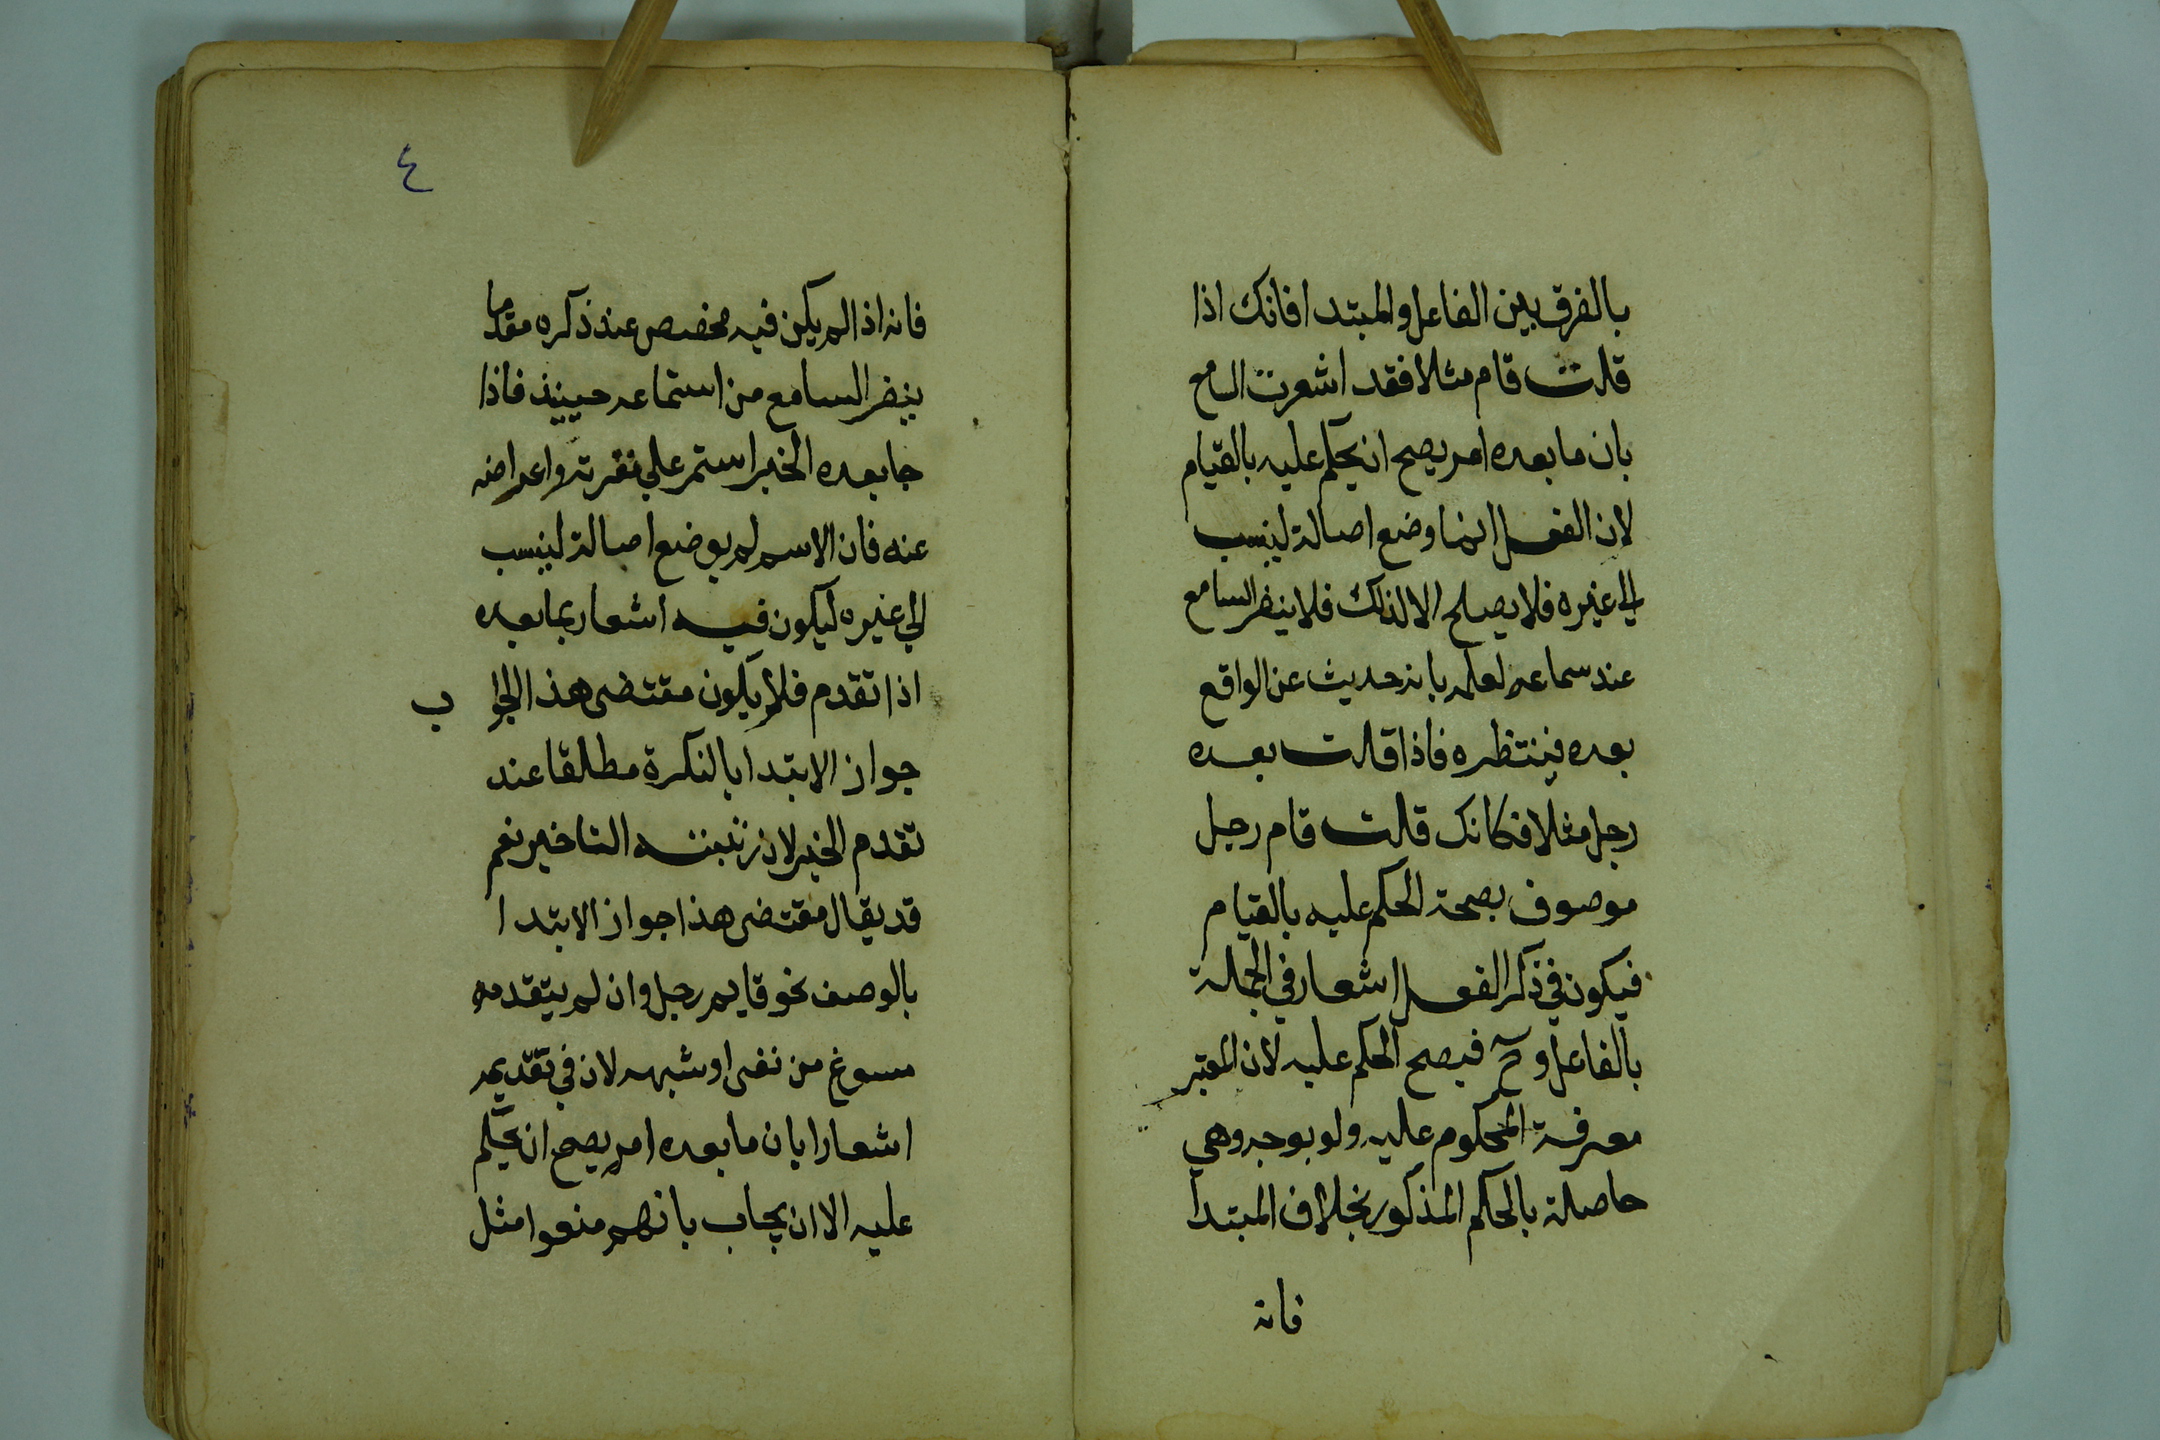 بالفرق بين الفاعل والمبتدا فانك اذا
قلت قام مثلا فقد اشعرت السامع
بان ما بعده امر يصح ان يحكم عليه بالقيام
لان الفعل انما وضع اصالة لينسب
الي غيره فلا يصلح الا لذلك فلا ينفر السامع
عند سماعه لعلمه بانه حديث عن الواقع
بعده فينتظره فاذا قلت بعده
رجل مثلا فكانك قلت قام رجل
موصوف بصحة الحكم عليه بالقيام
فيكون في ذكر الفعل اشعار في الجملة
بالفاعل وح فيصح الحكم عليه لان المعتبر
معرفة المحكوم عليه ولو بوجه وهي
حاصلة بالحكم المذكور بخلاف المبتدا
فانه
٤
فانه اذا لم يكن فيه مخصص عند ذكره مقدما
ينفر السامع من استماعه حينيذ فاذا
جا بعده الخبر استمر علي نفرته واعراضه
عنه فان الاسم لم يوضع اصالة لينسب
الي غيره ليكون فيه اشعار بما بعده
اذا تقدم فلا يكون مقتضى هذا الجوا ب
جواز الابتدا بالنكرة مطلقا عند
تقدم الخبر لان رتبته التاخير نعم
قد يقال مقتضى هذا جواز الابتدا
بالوصف نحو قايم رجل وان لم يتقدمه
مسوغ من نفى او شبهه لان في تقديمه
اشعارا بان ما بعده امر يصح ان يحكم
عليه الا ان يجاب بانهم منعوا مثل